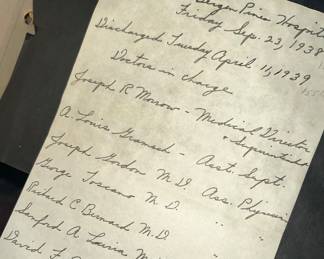 Bergen Pines Hospital
Friday Sep. 23, 1938
Discharged Tuesday April 11, 1939
Doctors in charge
Joseph R Morrow - Medical Director
& Superintendent
A. Louis - Asst. Supt.
Joseph Gordon M.D. Ass. Physician
George Toscano M.D. " "
Richard C Bernard M.D. " "
Sanford A. Lavine M.
David F.